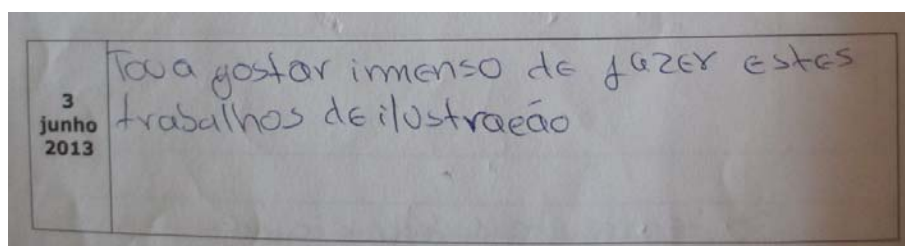 3
junho
2013
Tou a gostar imenso de fazer estes
trabalhos de ilustraeão